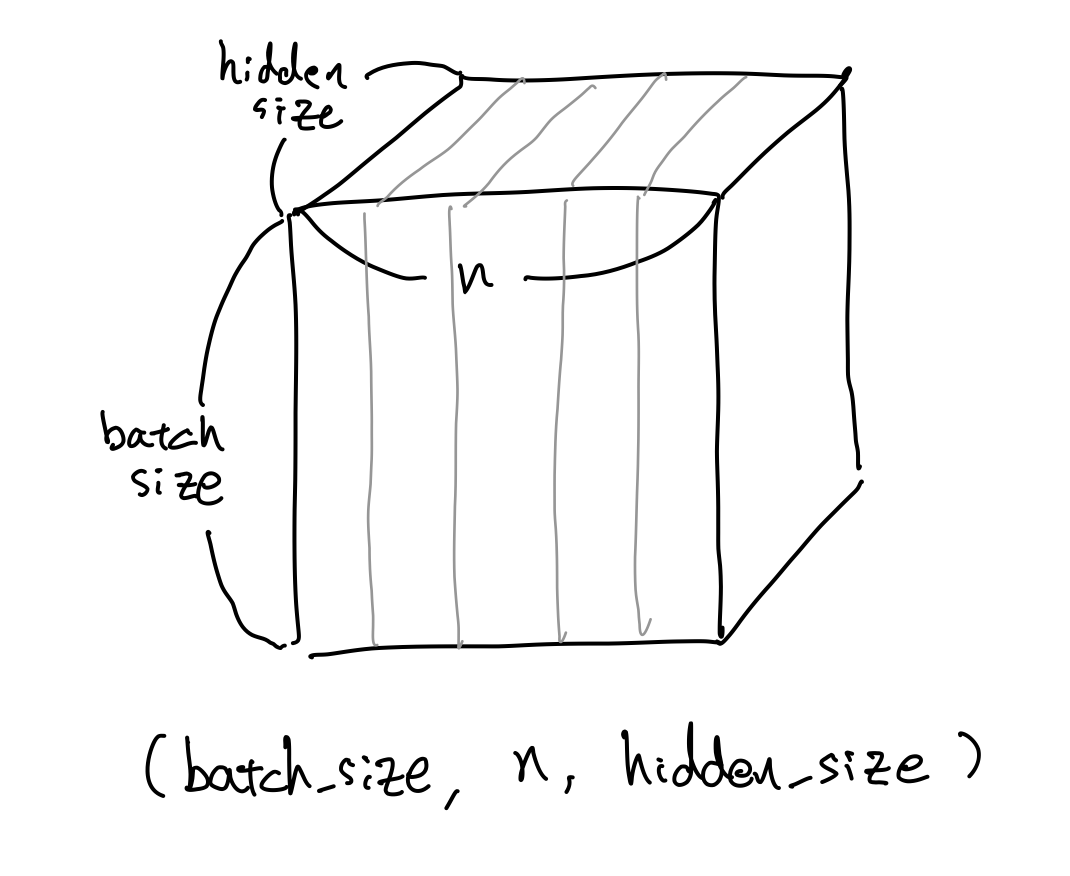 hidden
size
n
batch
size
(batch_size, n, hidden_size)